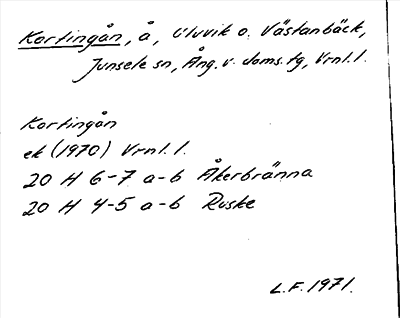 Kortingån, å, Uluvik o. Västanbäck,
Junsele sn, Ång. v. doms. tg, Vrnl. l.
Kortingån
ek (1970) Vrnl. l.
20 H 6-7 a-b Åkerbränna
20 H 4-5 a-b Ruske
L.F. 1971.